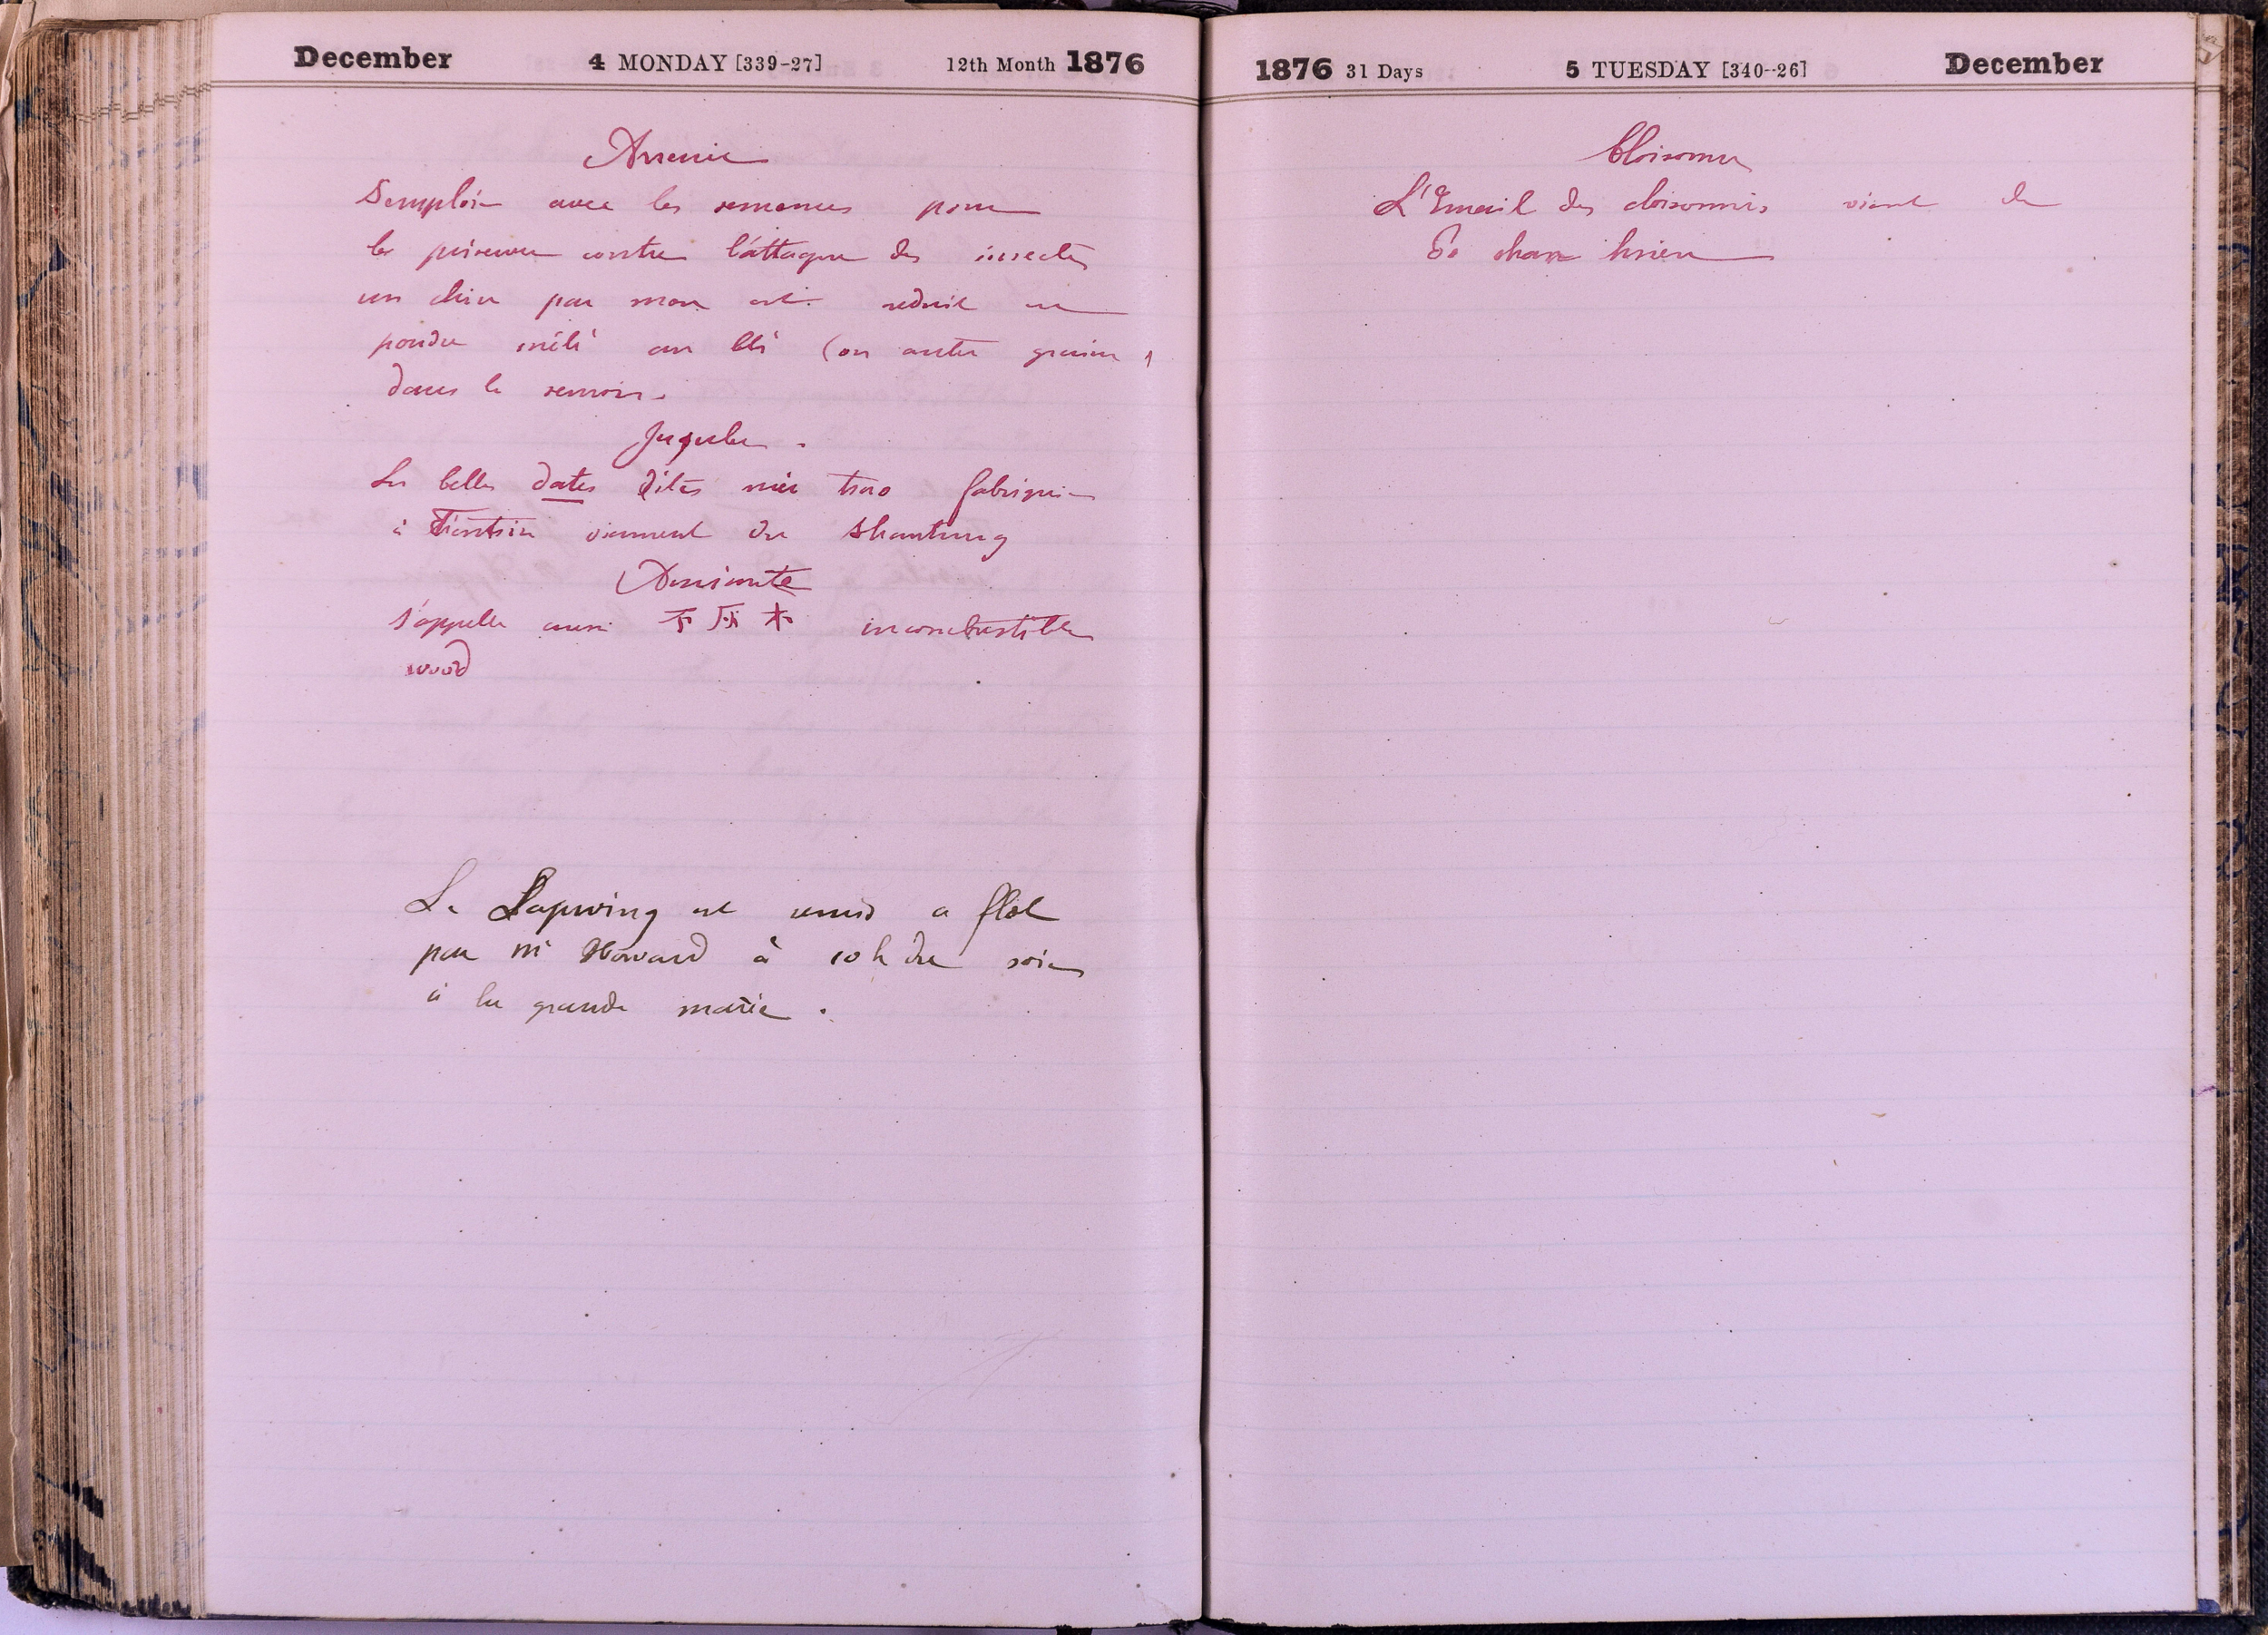 December 4 MONDAY [339-27] 12th Month 1876
Arsenic
S'emploie avec les semences pour
les préserver contre l'attaque des insectes
un chin par mou est réduit en
poudre mêlé au blé (ou autre graine)
dans le semoir.
Jujubes.
Les belles dates dites mei tsao fabriquées
à Tientsin viennent du Shantung
Amiante
s'appelle aussi 不灰木 incombustible
wood
Le Lapwing est remis a flot
par Mr Howard à 10 h du soir
à la grande marée.
1876 31 Days 5 TUESDAY [340-26] December
Cloisonné
L'Email des cloisonnés vient de
Po shan hsien